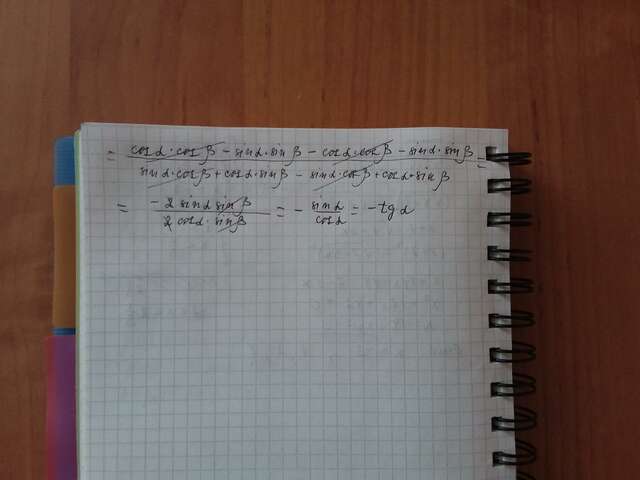 = cosα·cosβ - sinα·sinβ - cosα·cosβ - sinα·sinβ / sinα·cosβ + cosα·sinβ - sinα·cosβ + cosα·sinβ =
= -2 sinα sinβ / 2 cosα·sinβ = - sinα / cosα = -tgα